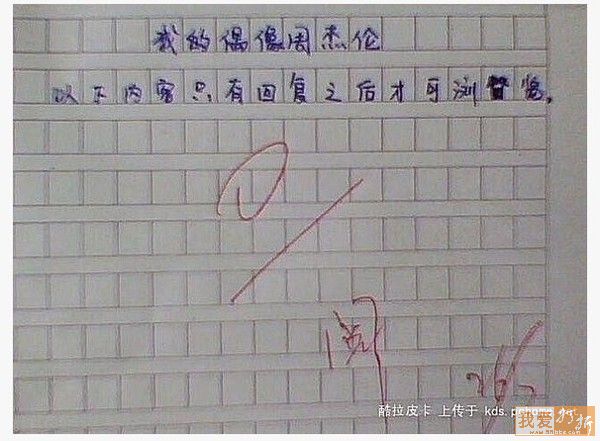 我的偶像周杰伦
以下内容只有回复之后才可浏览。
阅
酷拉皮卡 上传于 kds.pchome
我爱打折